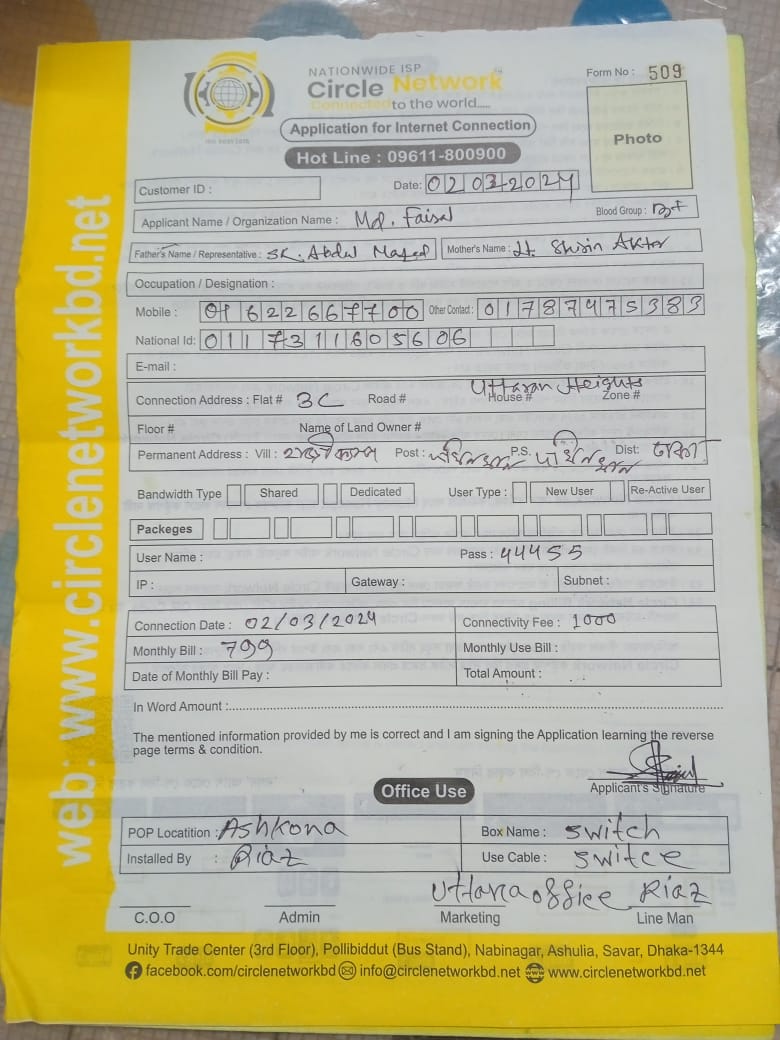 NATIONWIDE ISP
Circle Network
Connected to the world.....
Form No : 509
Application for Internet Connection
Hot Line : 09611-800900
Photo
Customer ID :
Date: 02032024
Applicant Name / Organization Name : Md. Faisal
Blood Group : B+
Father's Name / Representative : SK. Abdul Majed Mother's Name : Lt. Shirin Akter
Occupation / Designation :
Mobile : 01622667700 Other Contact : 01787475383
National Id: 0117311605606
E-mail :
Connection Address : Flat # 3C Road # House # Uttaran Heights Zone #
Floor # Name of Land Owner #
Permanent Address : Vill : Post : P.S. Dist: ঢাকা
Bandwidth Type Shared Dedicated User Type : New User Re-Active User
Packeges
User Name : Pass : 44455
IP : Gateway : Subnet :
Connection Date : 02/03/2024 Connectivity Fee : 1000
Monthly Bill : 799 Monthly Use Bill :
Date of Monthly Bill Pay : Total Amount :
In Word Amount :
The mentioned information provided by me is correct and I am signing the Application learning the reverse
page terms & condition.
Applicant's Signature
Office Use
POP Locatition : Ashkona Box Name : switch
Installed By : Riaz Use Cable : switce
Uttara office Riaz
C.O.O Admin Marketing Line Man
Unity Trade Center (3rd Floor), Pollibiddut (Bus Stand), Nabinagar, Ashulia, Savar, Dhaka-1344
facebook.com/circlenetworkbd info@circlenetworkbd.net www.circlenetworkbd.net
web: www.circlenetworkbd.net